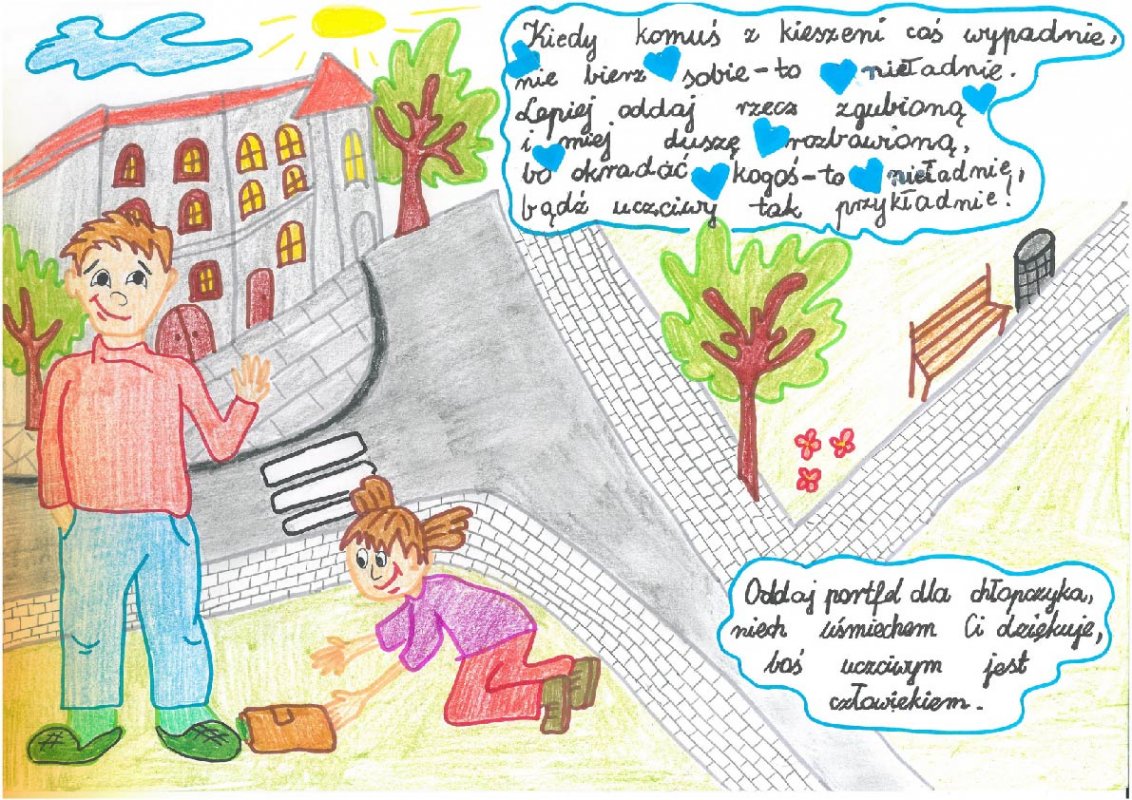 Kiedy komuś z kieszeni coś wypadnie,
nie bierz sobie-to nieładnie.
Lepiej oddaj rzecz zgubioną
i miej duszę rozbawioną,
bo okradać kogoś-to nieładnie,
bądź uczciwy tak przykładnie!
Oddaj portfel dla chłopczyka,
niech uśmiechem Ci dziękuje,
boś uczciwym jest
człowiekiem.